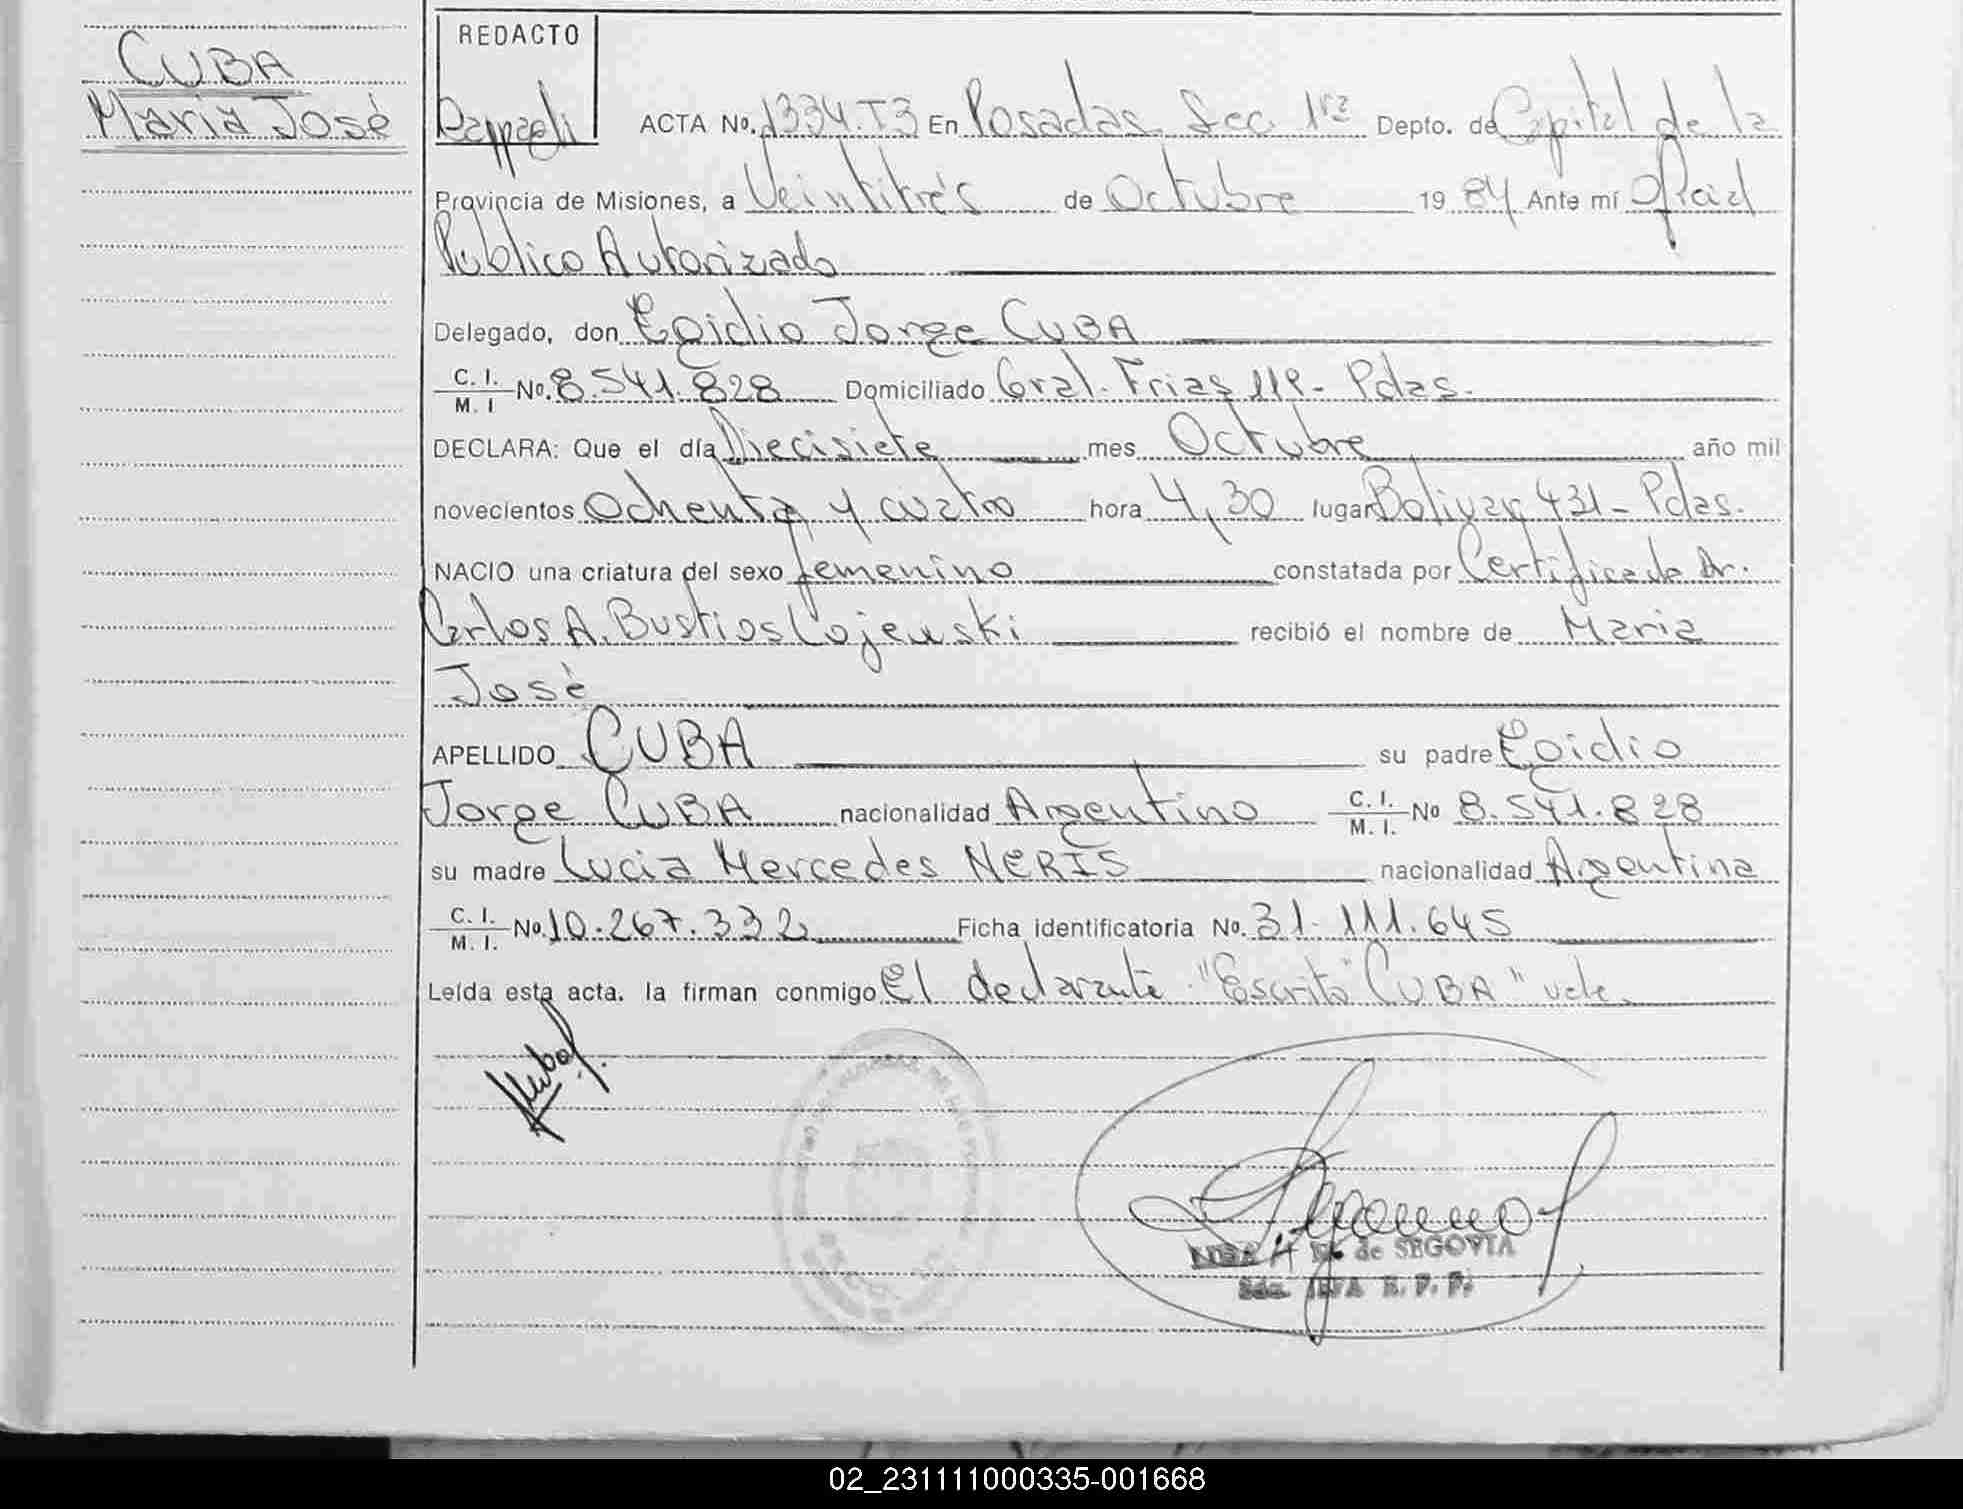 CUBA
María José
REDACTO
ACTA No. 1334.T3 En Posadas Sec. 1ra Depto. de Capital de la
Provincia de Misiones, a Veintitrés de Octubre 1984 Ante mí Oficial
Público Autorizado
Delegado, don Egidio Jorge CUBA
C. I. M. I No. 8.541.828 Domiciliado Gral. Frias 119 - Pdas.
DECLARA: Que el día Diecisiete mes Octubre año mil
novecientos Ochenta y cuatro hora 4,30 lugar Bolivar 431 - Pdas.
NACIO una criatura del sexo femenino constatada por Certificado Dr.
Carlos A. Bustios Cojewski recibió el nombre de María
José
APELLIDO CUBA su padre Egidio
Jorge CUBA nacionalidad Argentino C. I. M. I. No 8.541.828
su madre Lucia Mercedes NERIS nacionalidad Argentina
C. I. M. I. No. 10.267.332 Ficha identificatoria No. 31.111.645
Leída esta acta. la firman conmigo El declarante "Escrito" CUBA" vale.
de SEGOVIA
02_231111000335-001668